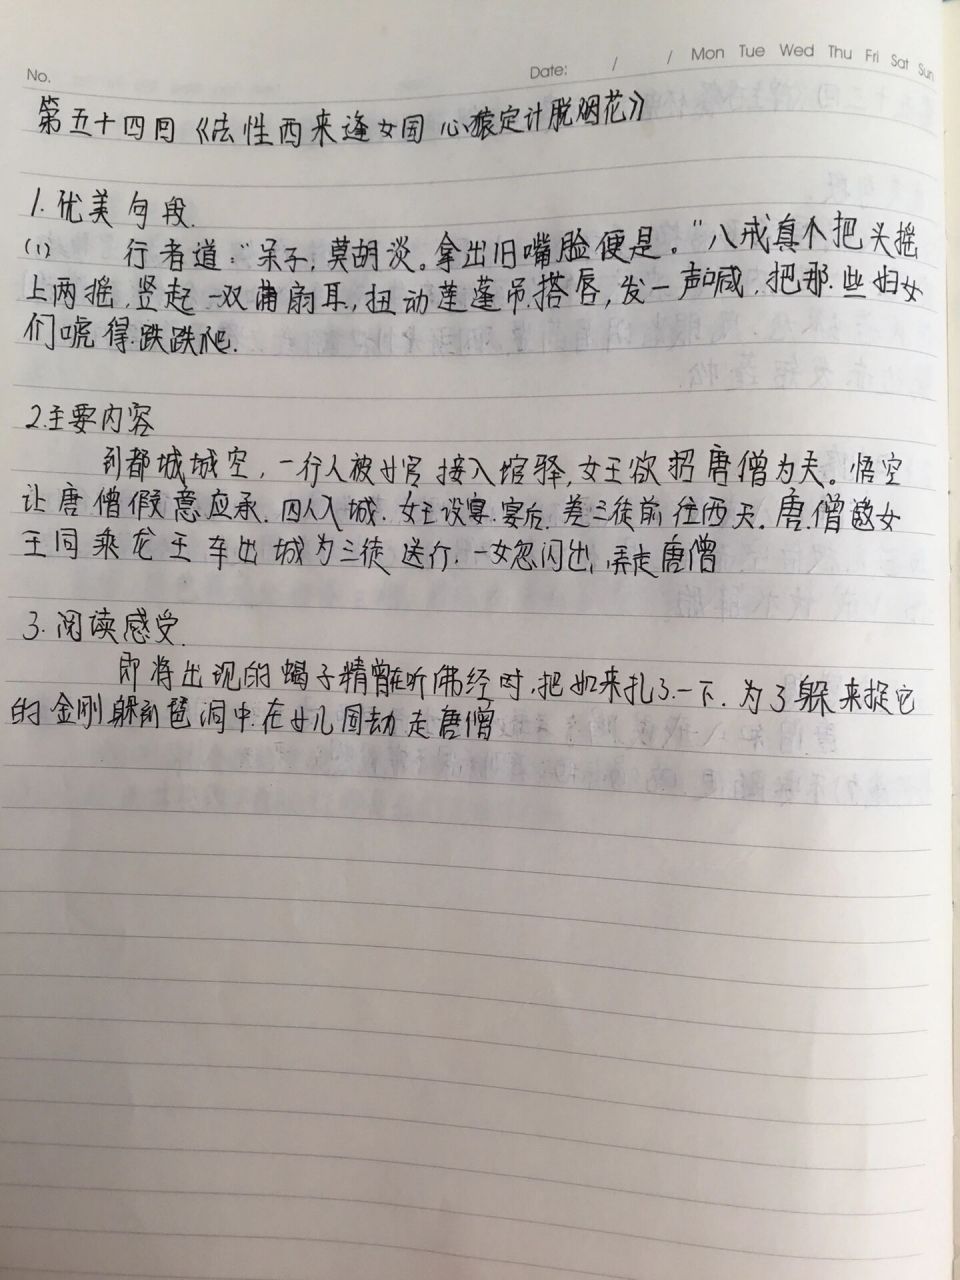 No.
Date: / / Mon Tue Wed Thu Fri Sat Sun
第五十四回《法性西来逢女国 心猿定计脱烟花》
1.优美句段.
(1) 行者道:"呆子,莫胡谈。拿出旧嘴脸便是。"八戒真个把头摇
上两摇,竖起一双蒲扇耳,扭动莲蓬吊搭唇,发一声喊,把那些妇女
们唬得跌跌爬.
2.主要内容
到都城城空,一行人被女官接入馆驿,女王欲招唐僧为夫。悟空
让唐僧假意应承.四人入城.女王设宴.宴后.差三徒前往西天.唐僧邀女
王同乘龙王车出城为三徒送行.一女忽闪出,弄走唐僧
3.阅读感受.
即将出现的蝎子精曾在听佛经时,把如来扎了一下.为了躲来捉它
的金刚躲到琶洞中.在女儿国劫走唐僧